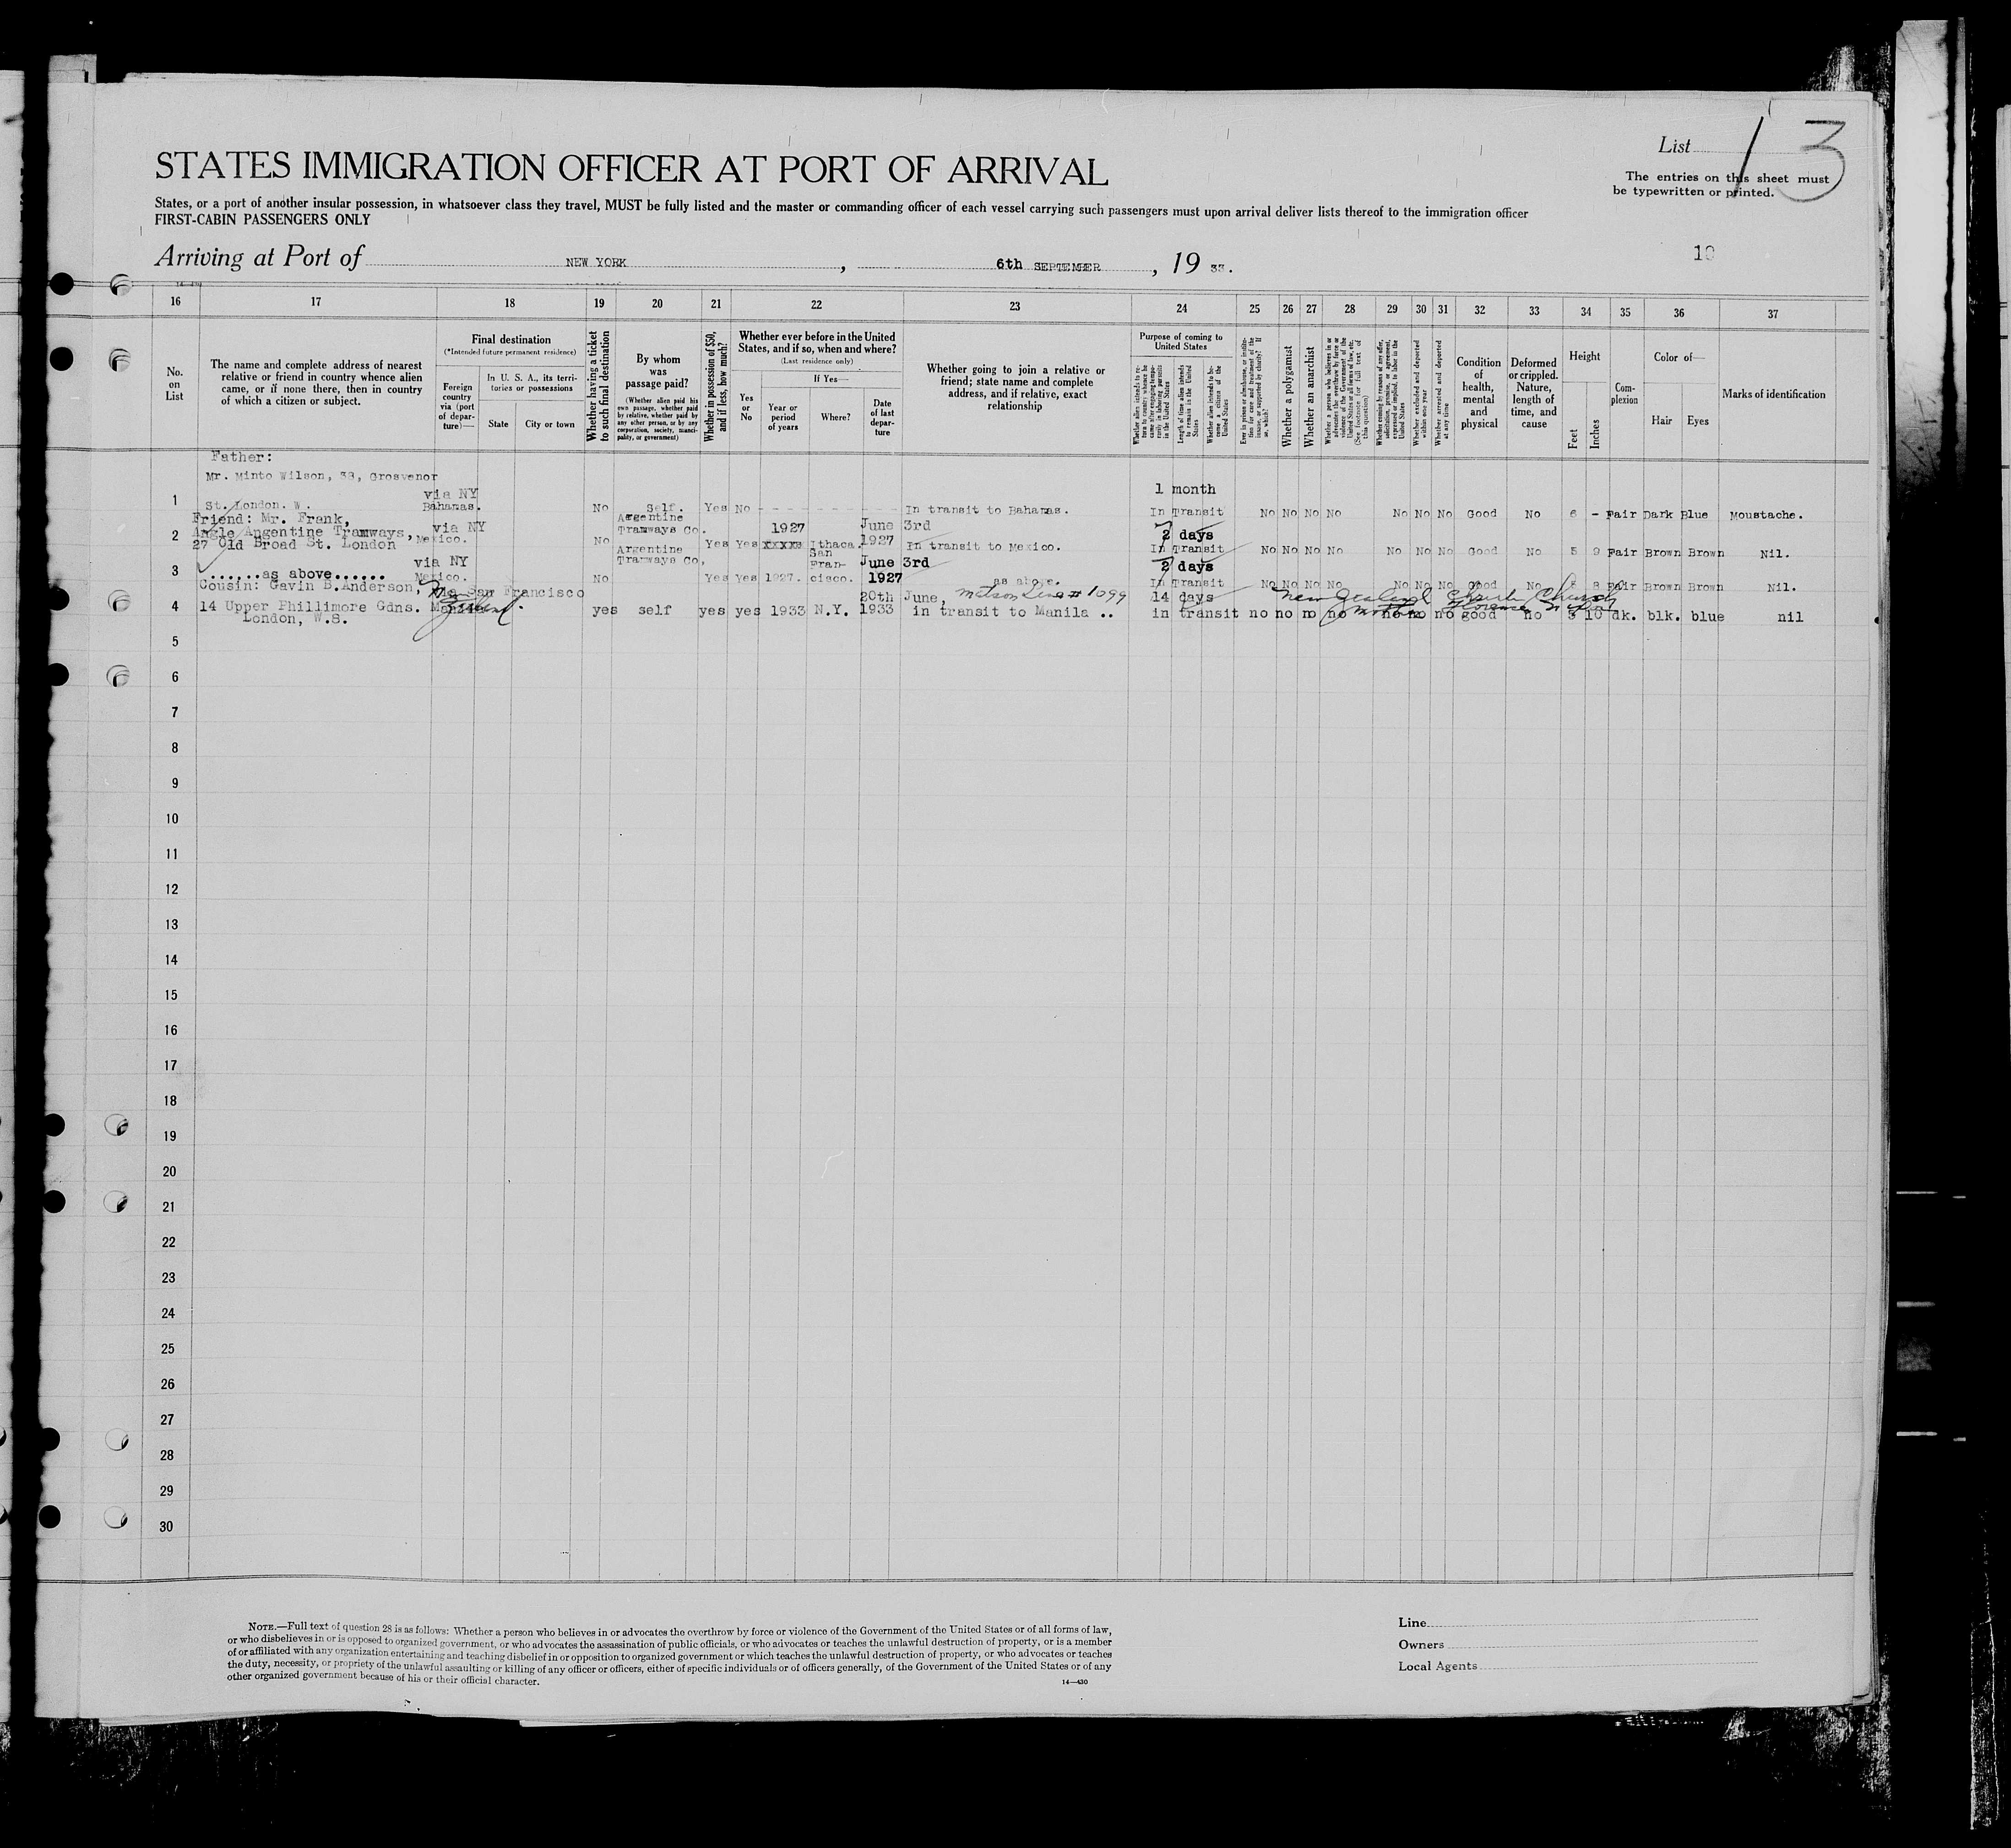 List 13
STATES IMMIGRATION OFFICER AT PORT OF ARRIVAL
The entries on this sheet must
be typewritten or printed.
States, or a port of another insular possession, in whatsoever class they travel, MUST be fully listed and the master or commanding officer of each vessel carrying such passengers must upon arrival deliver lists thereof to the immigration officer
FIRST-CABIN PASSENGERS ONLY
Arriving at Port of NEW YORK, 6th SEPTEMBER, 19 33.
16 17 18 19 20 21 22 23 24 25 26 27 28 29 30 31 32 33 34 35 36 37
No. on List
The name and complete address of nearest relative or friend in country whence alien came, or if none there, then in country of which a citizen or subject.
Final destination
(*Intended future permanent residence)
Foreign country via (port of departure)—
In U. S. A., its territories or possessions
State
City or town
Whether having a ticket to such final destination
By whom was passage paid?
(Whether alien paid his own passage, whether paid by relative, whether paid by any other person, or by any corporation, society, municipality, or government)
Whether in possession of $50, and if less, how much?
Whether ever before in the United States, and if so, when and where?
(Last residence only)
Yes or No
If Yes—
Year or period of years
Where?
Date of last departure
Whether going to join a relative or friend; state name and complete address, and if relative, exact relationship
Purpose of coming to United States
Whether alien intends to return to country whence he came after engaging temporarily in laboring pursuits in the United States
Length of time alien intends to remain in the United States
Whether alien intends to become a citizen of the United States
Ever in prison or almshouse, or institution for care and treatment of the insane, or supported by charity? If so, which?
Whether a polygamist
Whether an anarchist
Whether a person who believes in or advocates the overthrow by force or violence of the Government of the United States or all forms of law, etc. (See footnote for full text of this question)
Whether coming by reasons of any offer, solicitation, promise, or agreement, expressed or implied, to labor in the United States
Whether excluded and deported within one year
Whether arrested and deported at any time
Condition of health, mental and physical
Deformed or crippled. Nature, length of time, and cause
Height
Feet
Inches
Complexion
Color of—
Hair
Eyes
Marks of identification
Father:
Mr. Minto Wilson, 38, Grosvenor
1 St. London. W. via NY Bahamas. No Self. Yes No - - - - - - In transit to Bahamas. 1 month In Transit No No No No No No No Good No 6 - Fair Dark Blue Moustache.
Friend: Mr. Frank,
2 Angle/Argentine Tramways, via NY Mexico. No Argentine Tramways Co. Yes Yes 1927 xxxxx Ithaca. June 3rd 1927 In transit to Mexico. 2 days In Transit No No No No No No No Good No 5 9 Fair Brown Brown Nil.
27 Old Broad St. London
3 ......as above...... via NY Mexico. No Argentine Tramways Co, Yes Yes 1927. San Fran-cisco. June 3rd 1927 as above. 2 days In Transit No No No No No No No Good No 5 8 Fair Brown Brown Nil.
Cousin: Gavin B.Anderson, via San Francisco
4 14 Upper Phillimore Gdns. yes self yes yes 1933 N.Y. 20th June, 1933 Matson Line # 1099 in transit to Manila .. 14 days in transit no no no no no no no good no 5 10 dk. blk. blue nil
London, W.S.
New Zealand Christ Church
5
6
7
8
9
10
11
12
13
14
15
16
17
18
19
20
21
22
23
24
25
26
27
28
29
30
NOTE.—Full text of question 28 is as follows: Whether a person who believes in or advocates the overthrow by force or violence of the Government of the United States or of all forms of law,
or who disbelieves in or is opposed to organized government, or who advocates the assassination of public officials, or who advocates or teaches the unlawful destruction of property, or is a member
of or affiliated with any organization entertaining and teaching disbelief in or opposition to organized government or which teaches the unlawful destruction of property, or who advocates or teaches
the duty, necessity, or propriety of the unlawful assaulting or killing of any officer or officers, either of specific individuals or of officers generally, of the Government of the United States or of any
other organized government because of his or their official character.
14—430
Line
Owners
Local Agents